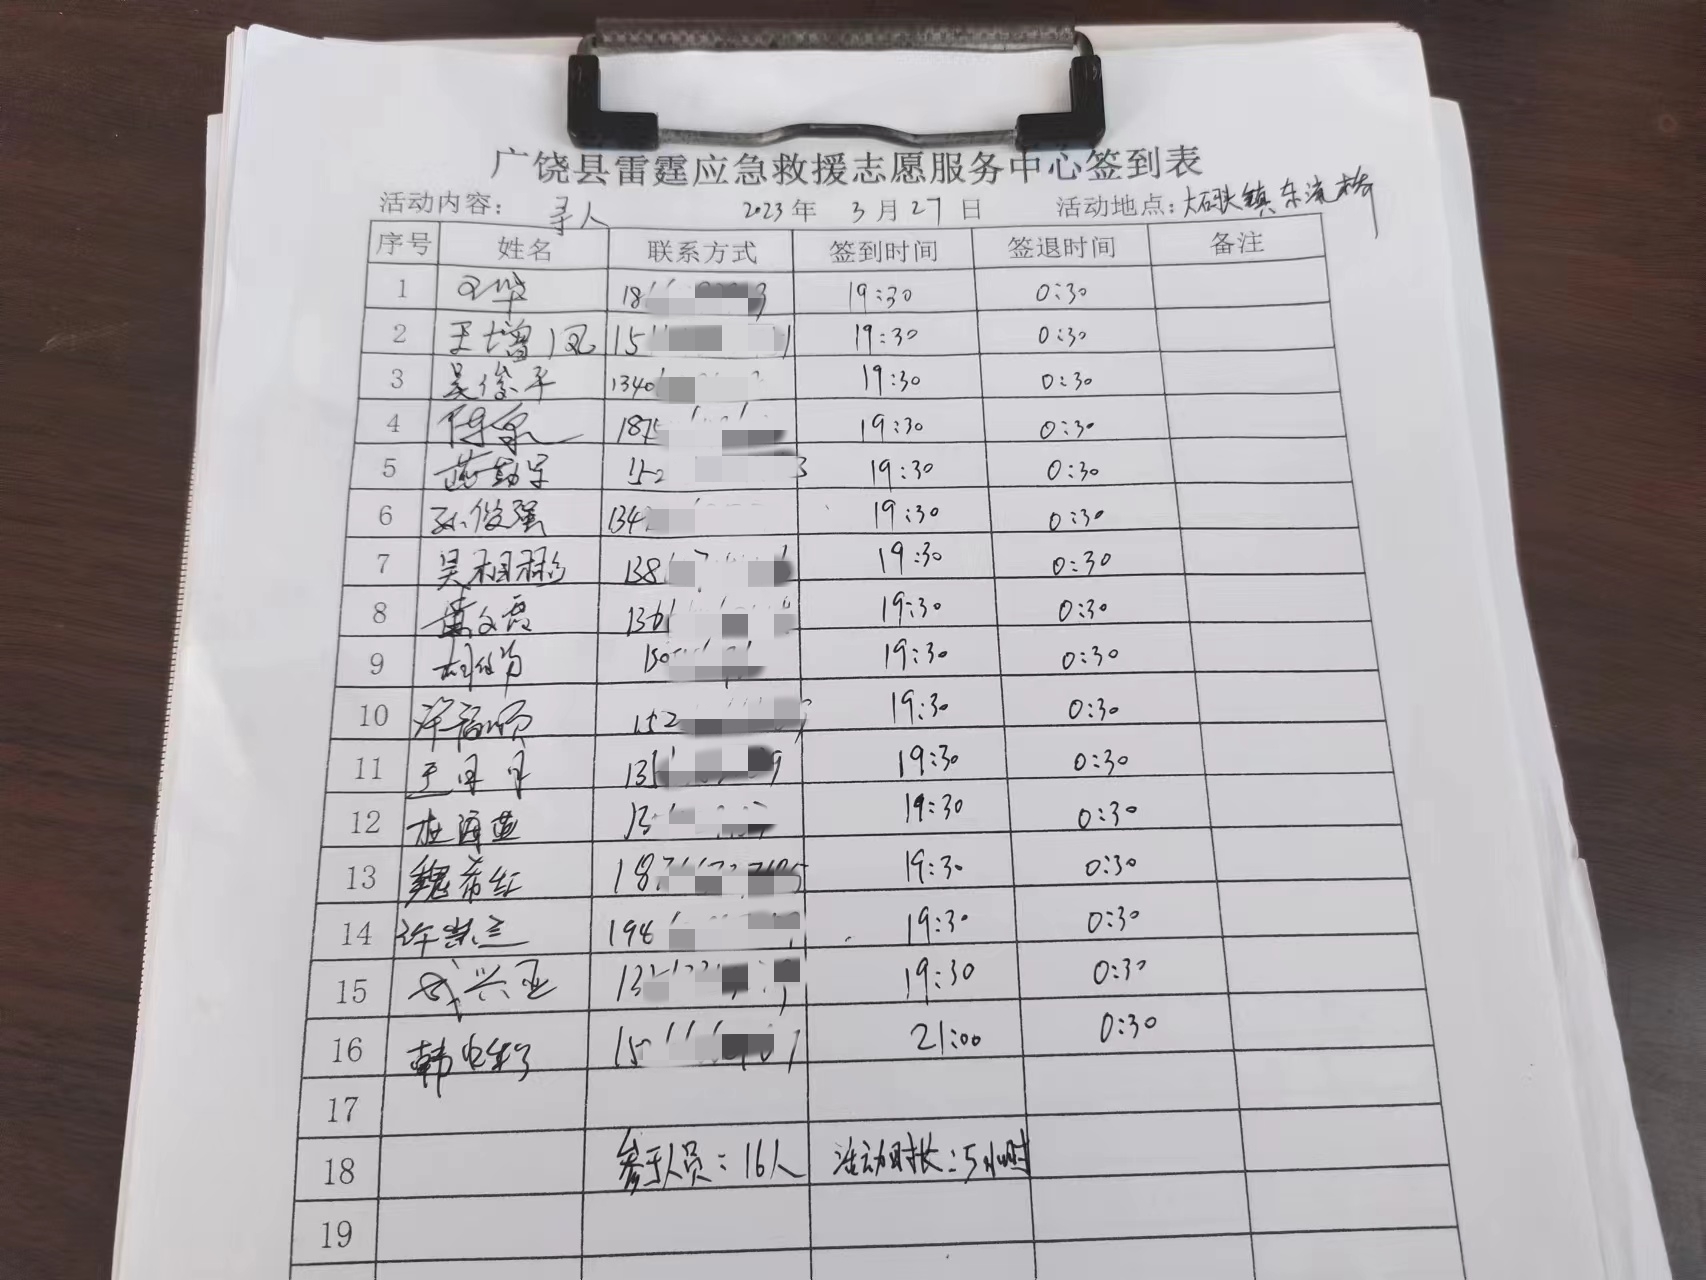 广饶县雷霆应急救援志愿服务中心签到表
活动内容: 寻人 2023年 3月27日 活动地点:大码头镇东流桥
序号 姓名 联系方式 签到时间 签退时间 备注
1 18 19:30 0:30
2 王增凤 15 19:30 0:30
3 吴俊平 1340 19:30 0:30
4 187 19:30 0:30
5 152 19:30 0:30
6 孙俊强 134 19:30 0:30
7 吴相彬 138 19:30 0:30
8 136 19:30 0:30
9 150 19:30 0:30
10 152 19:30 0:30
11 王月月 13 19:30 0:30
12 杜海燕 13 19:30 0:30
13 魏希红 187 19:30 0:30
14 许崇兰 198 19:30 0:30
15 成兴亚 13 19:30 0:30
16 韩 15 21:00 0:30
17
18 参于人员:16人 活动时长:5小时
19